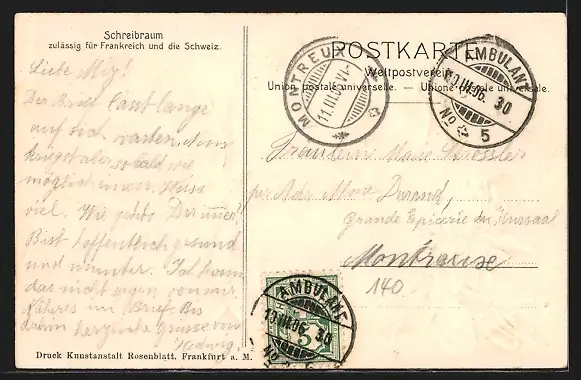 Schreibraum
zulässig für Frankreich und die Schweiz.
POSTKARTE
Weltpostverein
Union postale universelle. — Unione postale universale.
MONTREUX
11.III. VI
AMBULANT
10 III.06. 30
No 5
Liebe Mizi!
Der Brief lässt lange
auf sich warten, du
kriegst aber so bald wie
möglich einen. Weiss
viel. Wie geht's Dir immer?
Bist hoffentlich gesund
und munter. Ich kann
das nicht sagen von mir.
Näheres im Brief. Bis
dahin herzliche Grüsse von
Hedwig.
Fräulein Marie
per Adr. Mme Durand,
Grande Epicerie du Kursaal
Montreux
140
AMBULANT
10 III.06. 30
No
5
Druck Kunstanstalt Rosenblatt. Frankfurt a. M.